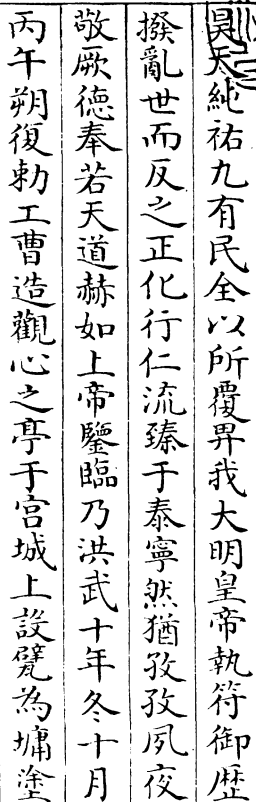 昊天純祐九有民全以所覆畀我大明皇帝執符御歴
撥亂世而反之正化行仁流臻于泰寧然猶孜孜夙夜
敬厥德奉若天道赫如上帝鑒臨乃洪武十年冬十月
丙午朔復勅工曹造觀心之亭于宮城上設甓為墉塗